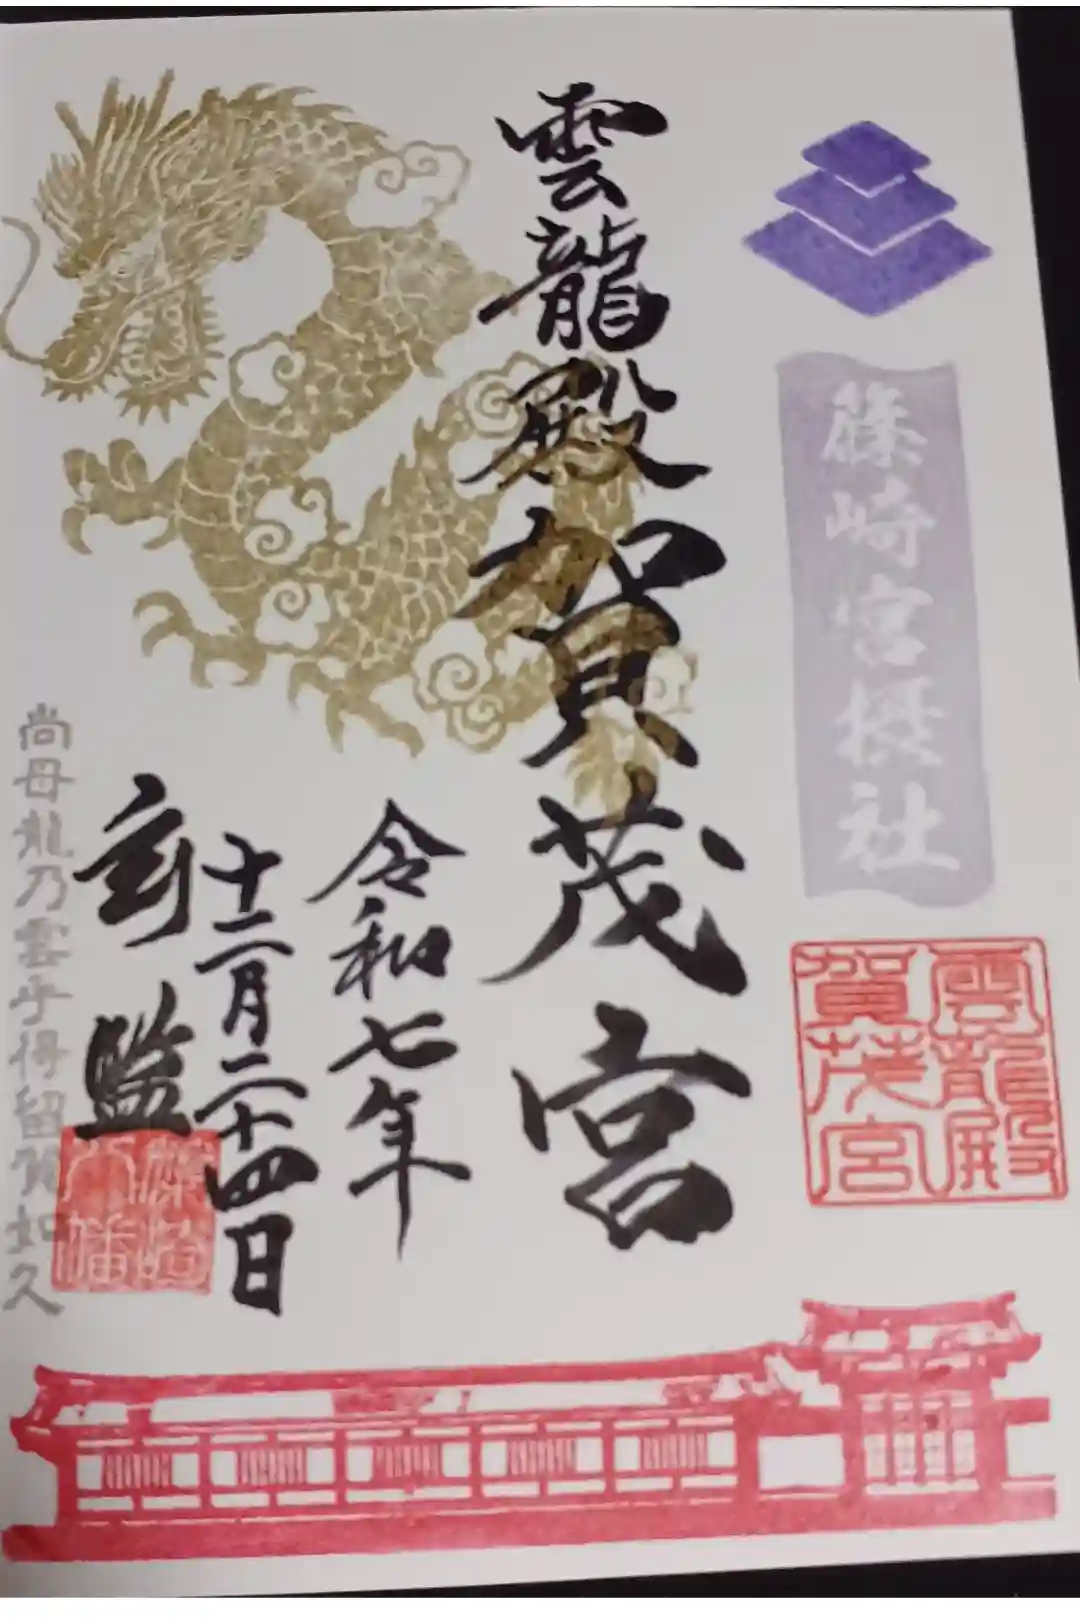 篠崎宮摂社
雲龍殿
賀茂宮
雲龍殿賀茂宮
令和七年
十二月二十四日
監
篠崎
八幡
尚母龍乃雲乎得留賀如久